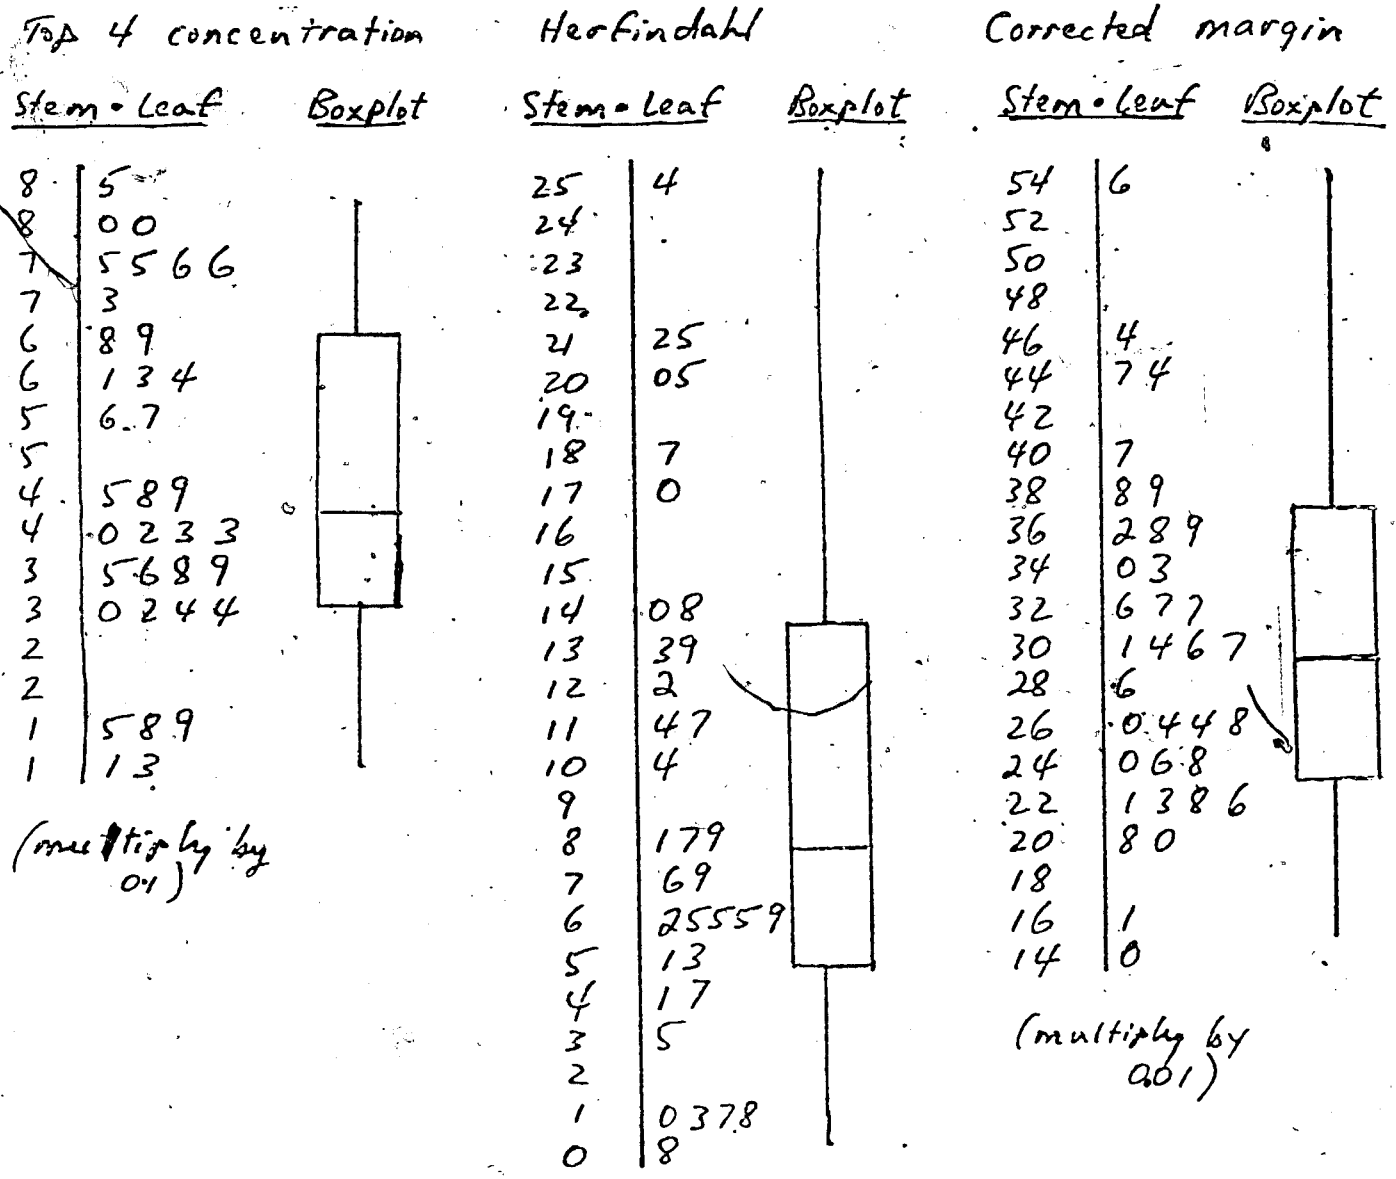 Top 4 concentration
Stem • Leaf Boxplot
8 5
8 0 0
7 5 5 6 6
7 3
6 8 9
6 1 3 4
5 6 7
5
4 5 8 9
4 0 2 3 3
3 5 6 8 9
3 0 2 4 4
2
2
1 5 8 9
1 1 3
(multiply by
0.1)
Herfindahl
Stem • Leaf Boxplot
25 4
24
23
22
21 25
20 05
19
18 7
17 0
16
15
14 08
13 39
12 2
11 47
10 4
9
8 179
7 69
6 25559
5 13
4 17
3 5
2
1 0378
0 8
Corrected margin
Stem • Leaf Boxplot
54 6
52
50
48
46 4
44 7 4
42
40 7
38 8 9
36 2 8 9
34 0 3
32 6 7 7
30 1 4 6 7
28 6
26 0 4 4 8
24 0 6 8
22 1 3 8 6
20 8 0
18
16 1
14 0
(multiply by
0.01)